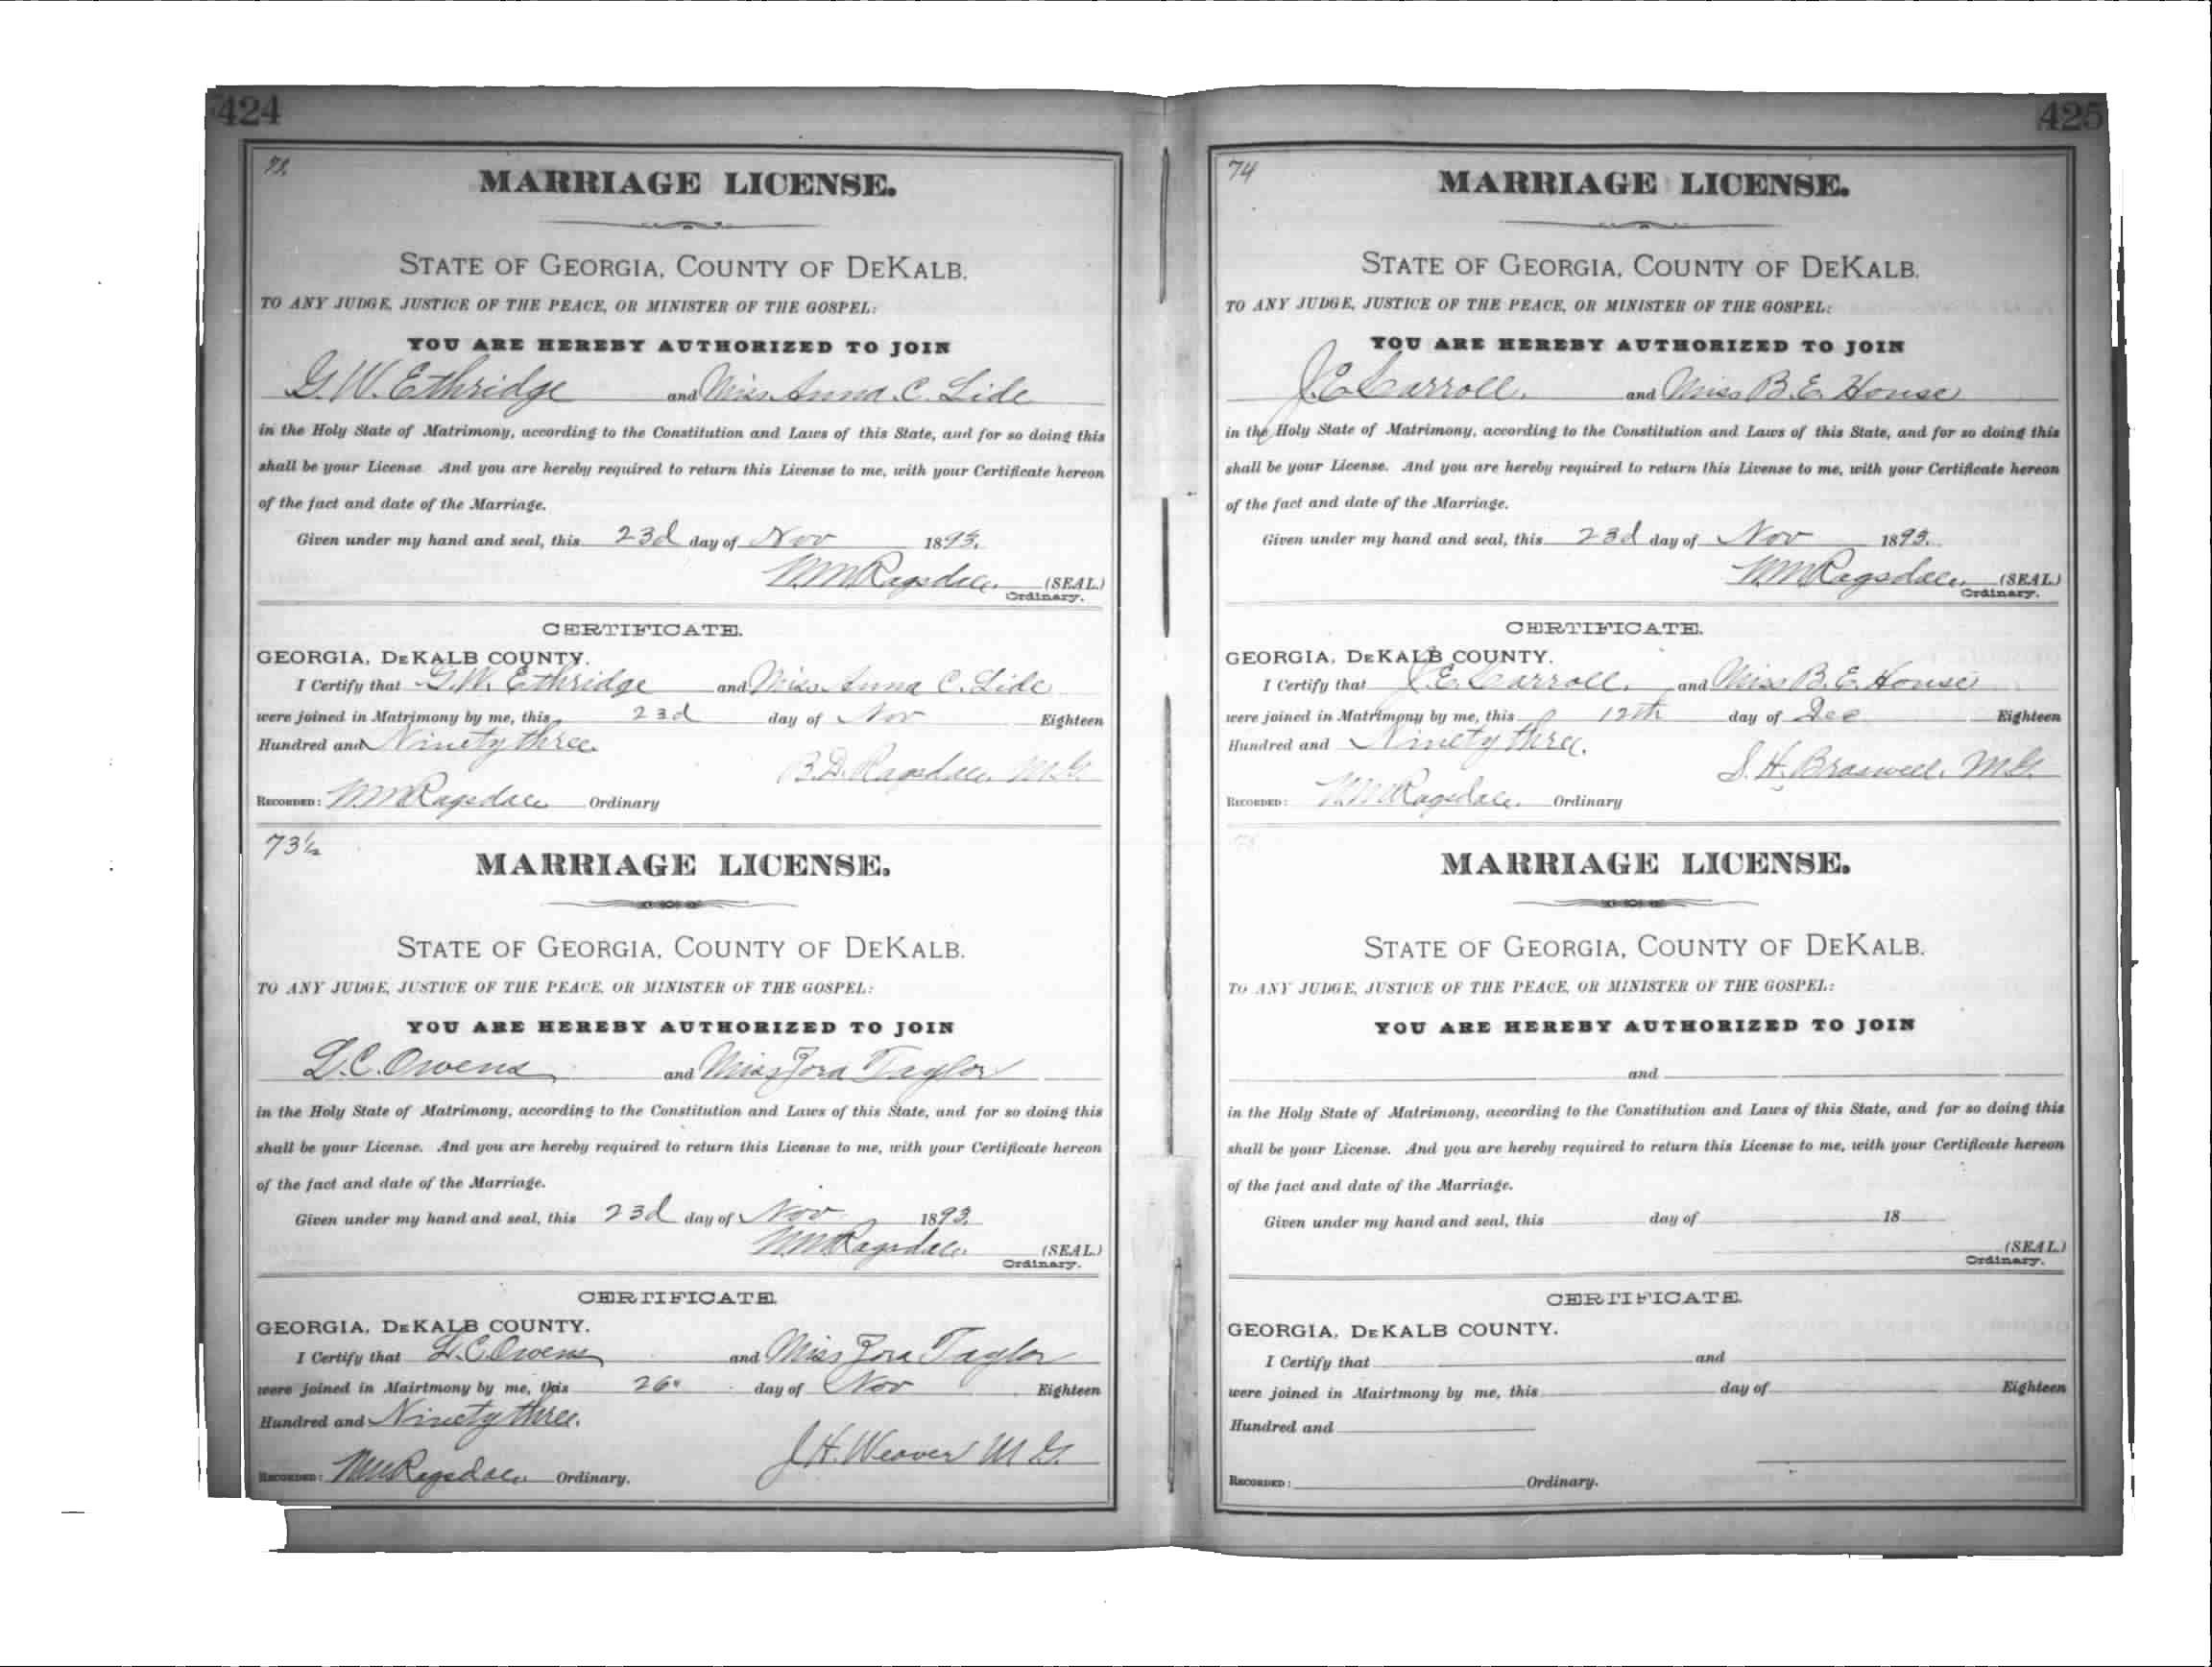 424
73
MARRIAGE LICENSE.
STATE OF GEORGIA, COUNTY OF DEKALB.
TO ANY JUDGE, JUSTICE OF THE PEACE, OR MINISTER OF THE GOSPEL:
YOU ARE HEREBY AUTHORIZED TO JOIN
G. W. Ethridge and Miss Anna C. Lide
in the Holy State of Matrimony, according to the Constitution and Laws of this State, and for so doing this
shall be your License. And you are hereby required to return this License to me, with your Certificate hereon
of the fact and date of the Marriage.
Given under my hand and seal, this 23d day of Nov 1893.
W M Ragsdale. (SEAL.)
Ordinary.
CERTIFICATE.
GEORGIA, DEKALB COUNTY.
I Certify that G. W. Ethridge and Miss Anna C. Lide
were joined in Matrimony by me, this 23d day of Nov Eighteen
Hundred and Ninety three.
B. D. Ragsdale. M.G.
RECORDED: W M Ragsdale Ordinary
73½
MARRIAGE LICENSE.
STATE OF GEORGIA, COUNTY OF DEKALB.
TO ANY JUDGE, JUSTICE OF THE PEACE, OR MINISTER OF THE GOSPEL:
YOU ARE HEREBY AUTHORIZED TO JOIN
L. C. Owens and Miss Zora Taylor
in the Holy State of Matrimony, according to the Constitution and Laws of this State, and for so doing this
shall be your License. And you are hereby required to return this License to me, with your Certificate hereon
of the fact and date of the Marriage.
Given under my hand and seal, this 23d day of Nov 1893.
W M Ragsdale. (SEAL.)
Ordinary.
CERTIFICATE.
GEORGIA, DEKALB COUNTY.
I Certify that L. C. Owens and Miss Zora Taylor
were joined in Mairtmony by me, this 26" day of Nov Eighteen
Hundred and Ninety three.
J. H. Weaver M G.
RECORDED: W M Ragsdale Ordinary.
425
74
MARRIAGE LICENSE.
STATE OF GEORGIA, COUNTY OF DEKALB.
TO ANY JUDGE, JUSTICE OF THE PEACE, OR MINISTER OF THE GOSPEL:
YOU ARE HEREBY AUTHORIZED TO JOIN
J. E. Carroll. and Miss B. E. House
in the Holy State of Matrimony, according to the Constitution and Laws of this State, and for so doing this
shall be your License. And you are hereby required to return this License to me, with your Certificate hereon
of the fact and date of the Marriage.
Given under my hand and seal, this 23d day of Nov 1893.
W M Ragsdale. (SEAL.)
Ordinary.
CERTIFICATE.
GEORGIA, DEKALB COUNTY.
I Certify that J. E. Carroll. and Miss B. E. House
were joined in Matrimony by me, this 12th day of Dec Eighteen
Hundred and Ninety three.
S. H. Braswell. M.G.
RECORDED: W M Ragsdale. Ordinary
MARRIAGE LICENSE.
STATE OF GEORGIA, COUNTY OF DEKALB.
TO ANY JUDGE, JUSTICE OF THE PEACE, OR MINISTER OF THE GOSPEL:
YOU ARE HEREBY AUTHORIZED TO JOIN
and
in the Holy State of Matrimony, according to the Constitution and Laws of this State, and for so doing this
shall be your License. And you are hereby required to return this License to me, with your Certificate hereon
of the fact and date of the Marriage.
Given under my hand and seal, this day of 18
(SEAL.)
Ordinary.
CERTIFICATE.
GEORGIA, DEKALB COUNTY.
I Certify that and
were joined in Mairtmony by me, this day of Eighteen
Hundred and
RECORDED: Ordinary.